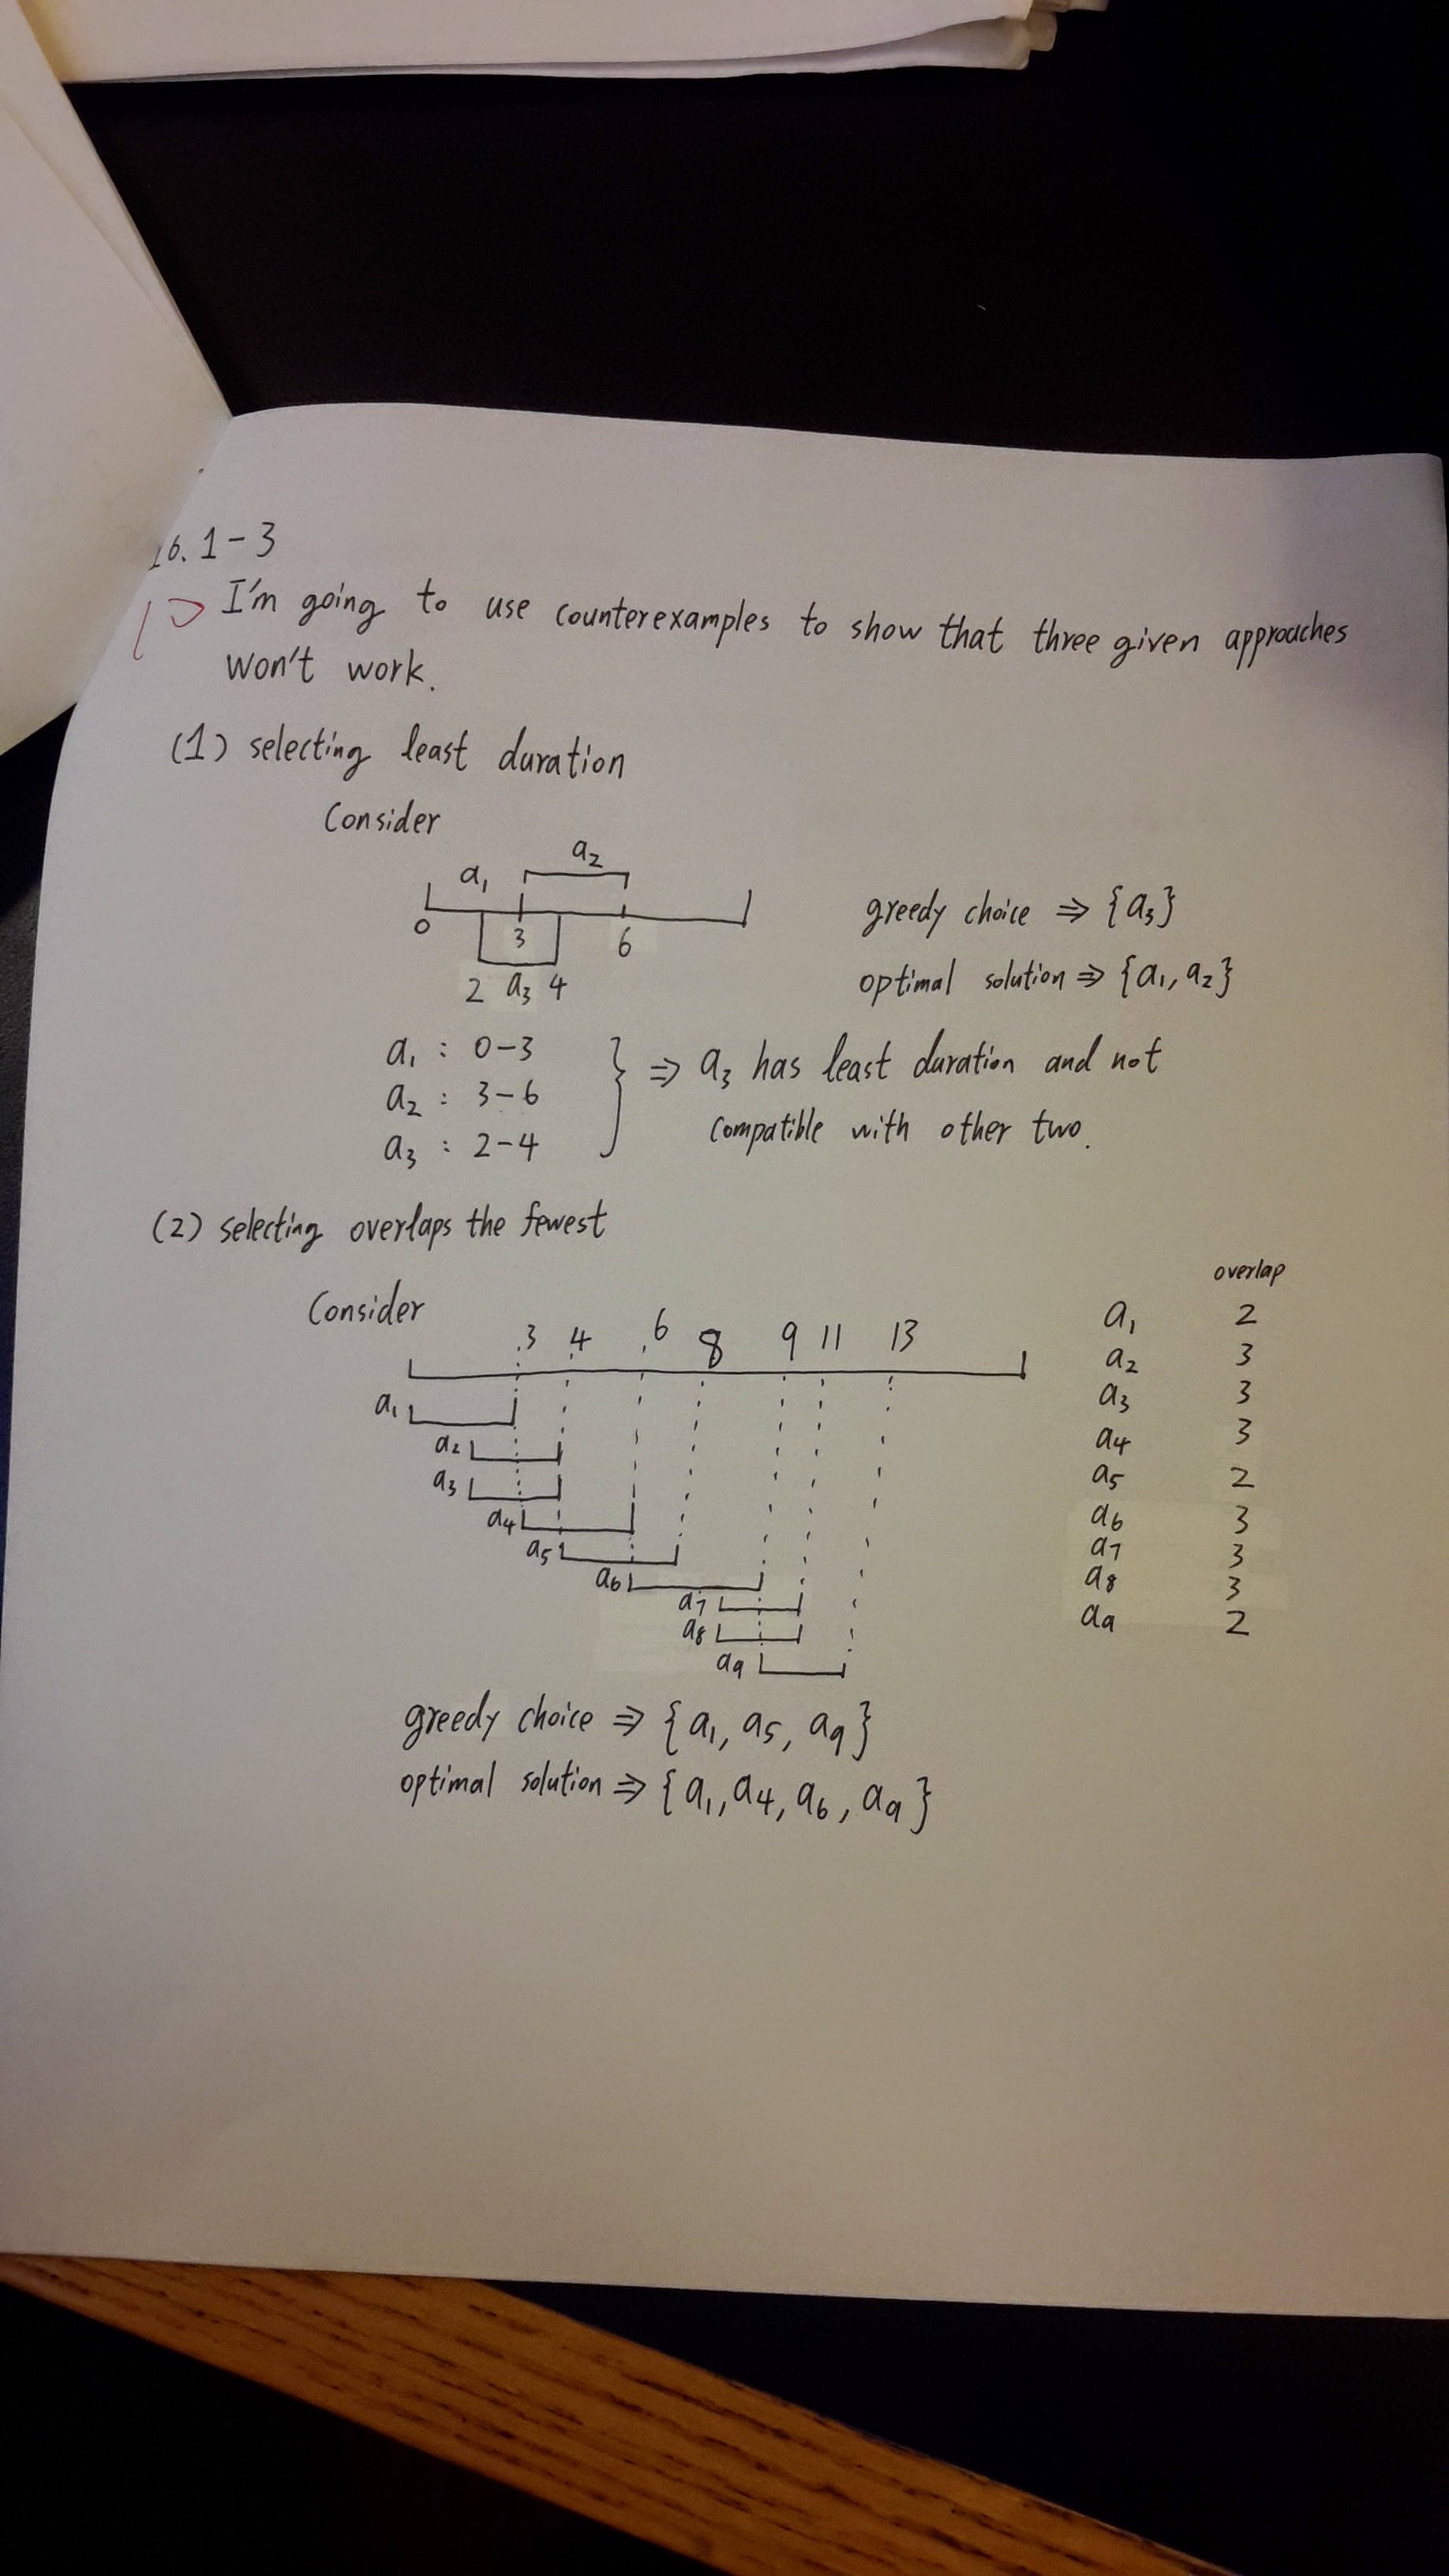 16.1-3
10
I'm going to use counterexamples to show that three given approaches
won't work.
(1) selecting least duration
Consider
a₁ a₂
0 3 6
2 a₃ 4
greedy choice ⇒ {a₃}
optimal solution ⇒ {a₁, a₂}
a₁ : 0-3
a₂ : 3-6
a₃ : 2-4
} ⇒ a₃ has least duration and not
compatible with other two.
(2) selecting overlaps the fewest
Consider
3 4 6 8 9 11 13
a₁
a₂
a₃
a₄
a₅
a₆
a₇
a₈
a₉
overlap
a₁ 2
a₂ 3
a₃ 3
a₄ 3
a₅ 2
a₆ 3
a₇ 3
a₈ 3
a₉ 2
greedy choice ⇒ {a₁, a₅, a₉}
optimal solution ⇒ {a₁, a₄, a₆, a₉}